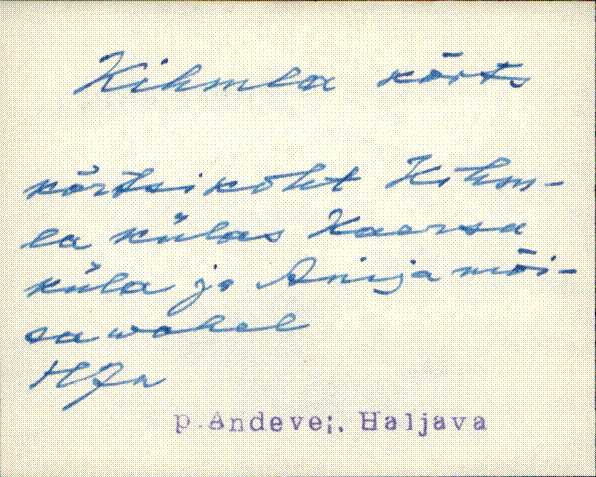 Kihmla kõrts
kõrtsikoht Kihm-
la külas Kaersa
küla ja Anija mõi-
sa wahel
HJn
p.Andevei, Haljava